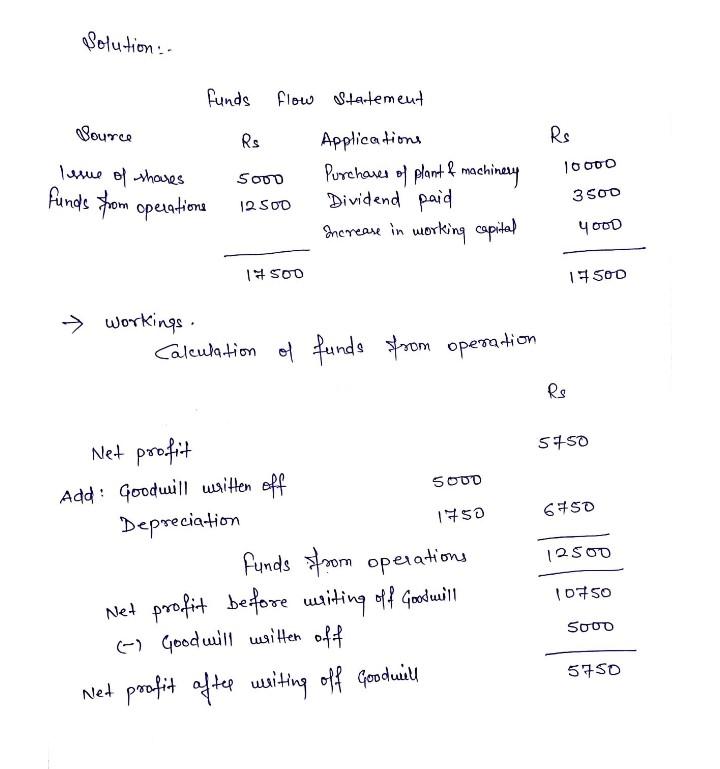 Solution:-
Funds Flow Statement
Source Rs Applications Rs
Issue of shares 5000 Purchases of plant & machinery 10000
Funds from operations 12500 Dividend paid 3500
Increase in working capital 4000
17500 17500
→ Workings.
Calculation of funds from operation
Rs
Net profit 5750
Add: Goodwill written off 5000
Depreciation 1750 6750
Funds from operations 12500
Net profit before writing off Goodwill 10750
(-) Goodwill written off 5000
Net profit after writing off Goodwill 5750